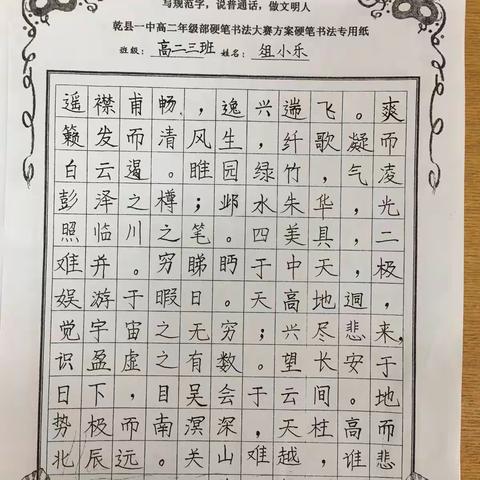 写规范字，说普通话，做文明人
乾县一中高二年级部硬笔书法大赛方案硬笔书法专用纸
班级：高二三班 姓名：俎小乐
遥襟甫畅，逸兴遄飞。爽
籁发而清风生，纤歌凝而
白云遏。睢园绿竹，气凌
彭泽之樽；邺水朱华，光
照临川之笔。四美具，二
难并。穷睇眄于中天，极
娱游于暇日。天高地迥，
觉宇宙之无穷；兴尽悲来，
识盈虚之有数。望长安于
日下，目吴会于云间。地
势极而南溟深，天柱高而
北辰远。关山难越，谁悲